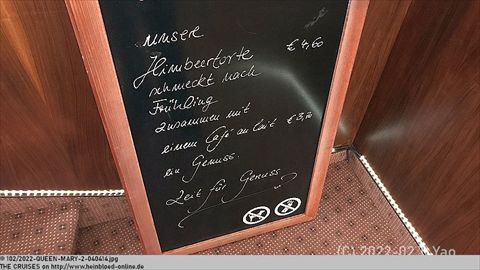 unsere
Himbeertorte € 4,60
schmeckt nach
Frühling
zusammen mit
einem Café au lait € 3,
ein Genuss.
Zeit für Genuss
(C) 2022-02 Yao
© 102/2022-QUEEN-MARY-2-040414.jpg
THE CRUISES on http://www.heinbloed-online.de